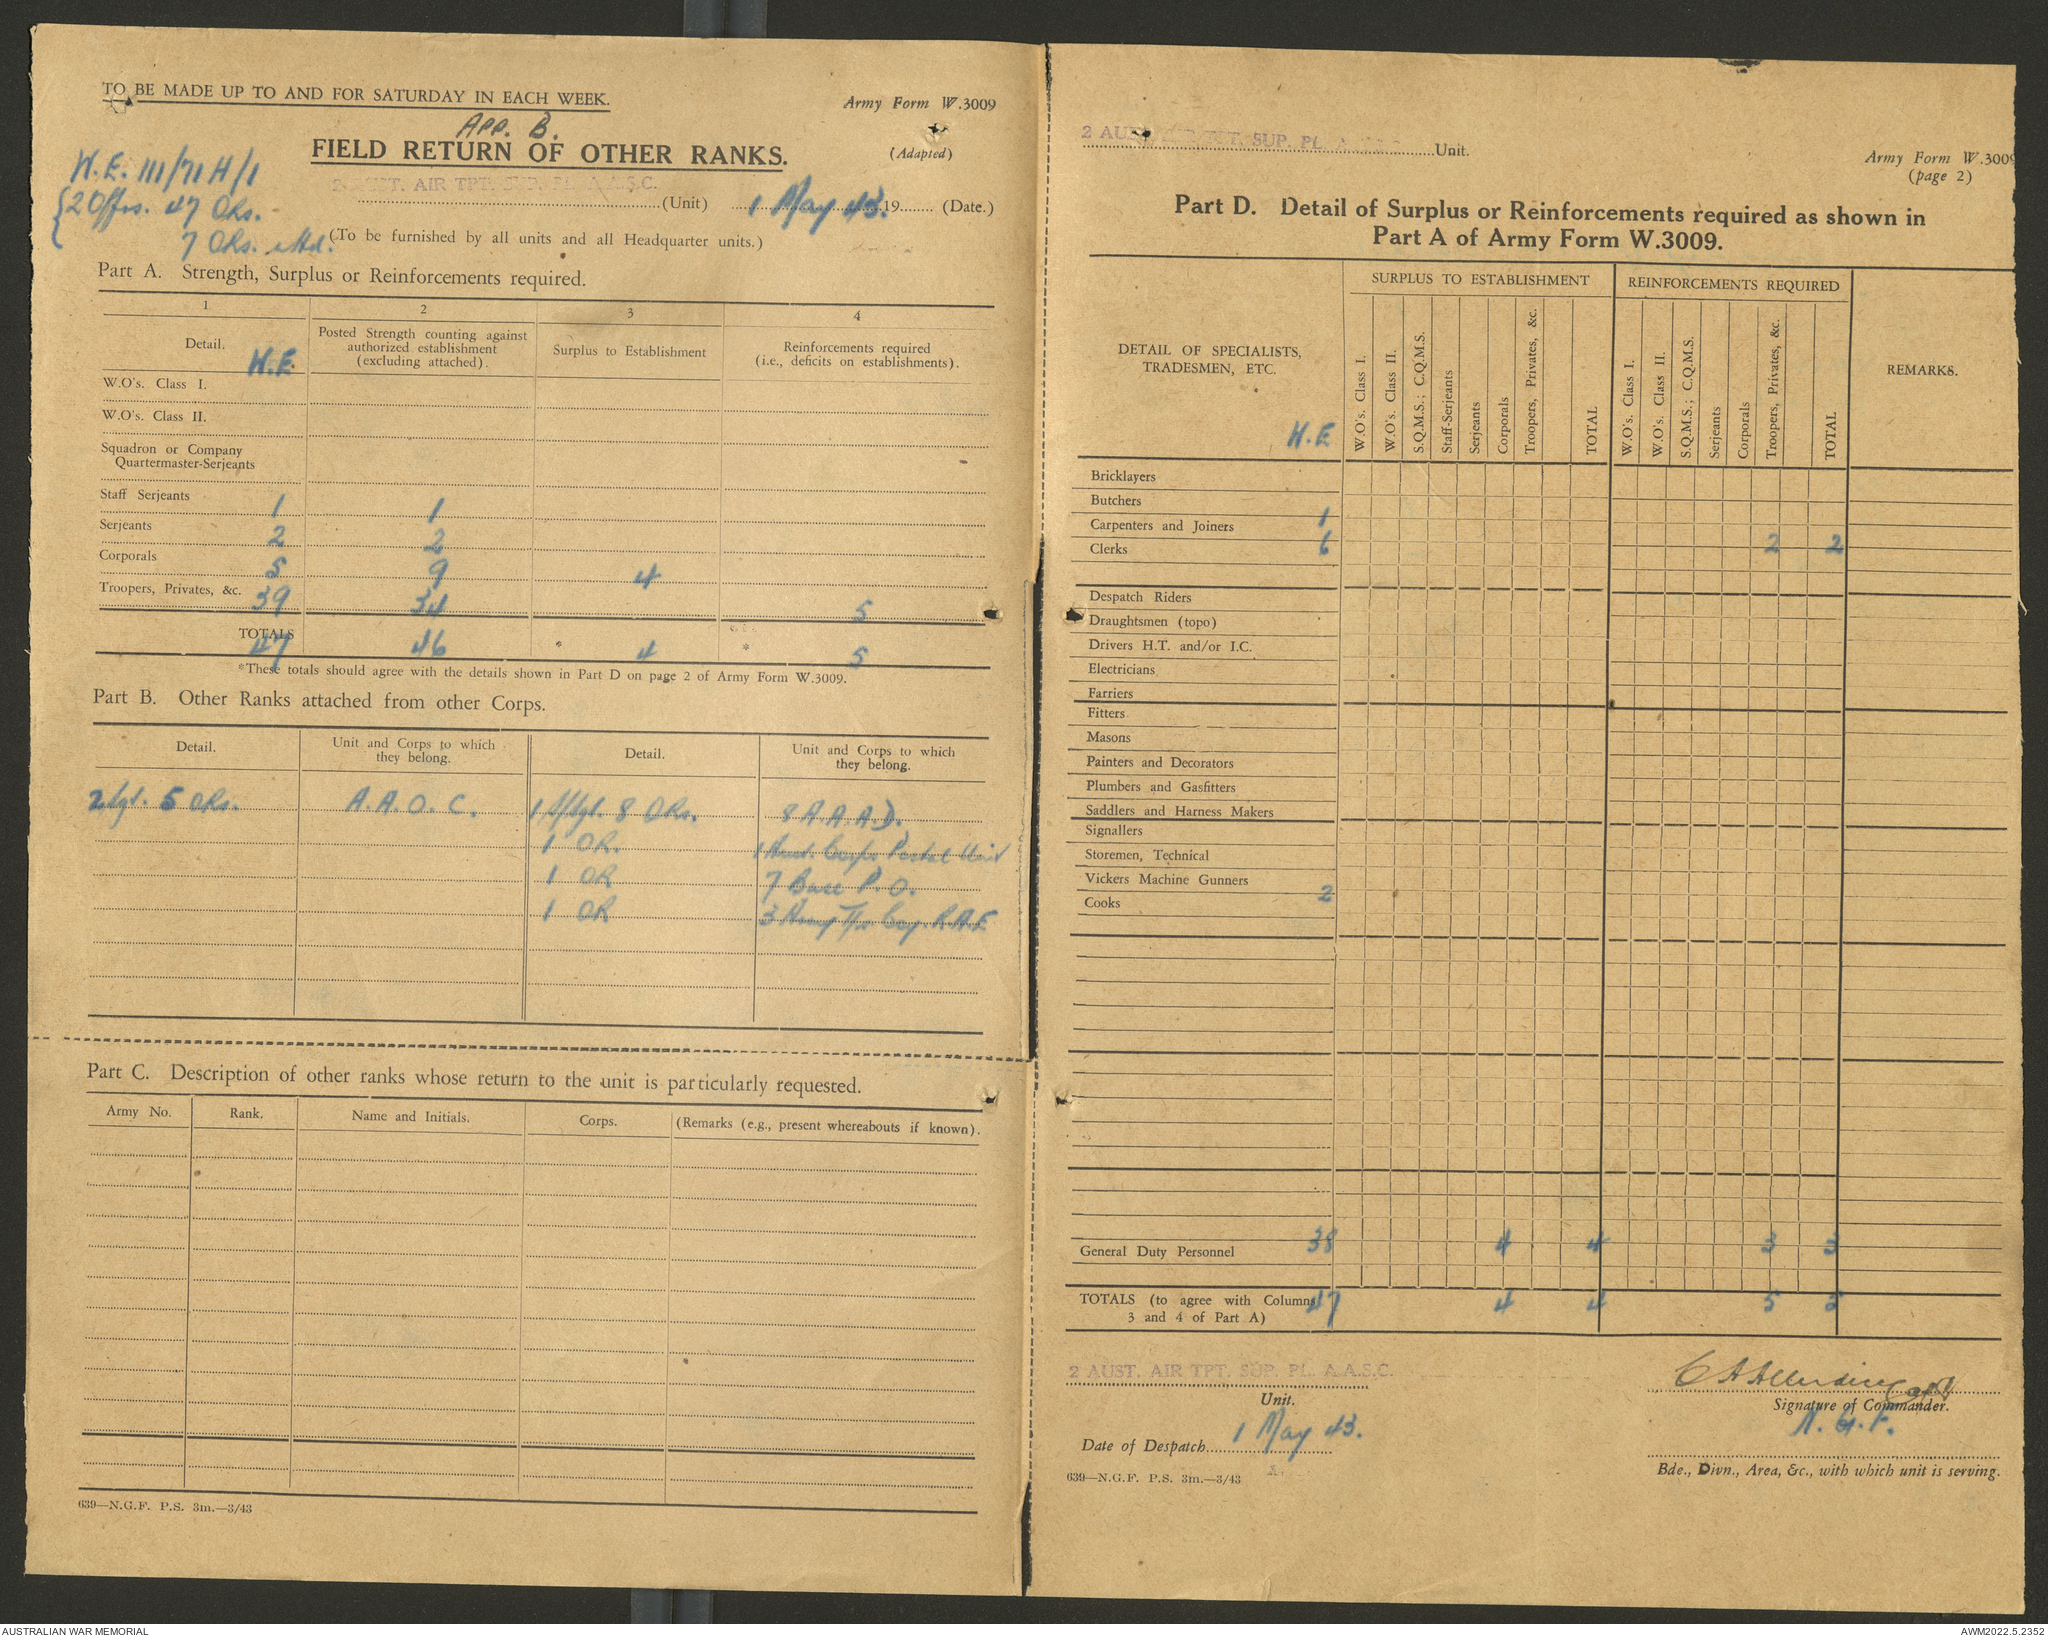 TO BE MADE UP TO AND FOR SATURDAY IN EACH WEEK.
Army Form W.3009
App. B.
FIELD RETURN OF OTHER RANKS.
(Adapted)
W.E. 111/71 H/1
2 AUST. AIR TPT. SUP. PL. A.A.S.C.
(Unit) 1 May 43. 19 (Date.)
{2 Offrs. 47 ORs.
7 ORs. attd.
(To be furnished by all units and all Headquarter units.)
Part A. Strength, Surplus or Reinforcements required.
1 2 3 4
Detail. W.E. Posted Strength counting against authorized establishment (excluding attached). Surplus to Establishment Reinforcements required (i.e., deficits on establishments).
W.O's. Class I.
W.O's. Class II.
Squadron or Company
Quartermaster-Serjeants
Staff Serjeants 1 1
Serjeants 2 2
Corporals 5 9 4
Troopers, Privates, &c. 39 34 5
TOTALS 47 46 * 4 * 5
*These totals should agree with the details shown in Part D on page 2 of Army Form W.3009.
Part B. Other Ranks attached from other Corps.
Detail. Unit and Corps to which they belong. Detail. Unit and Corps to which they belong.
2 Sgt. 5 ORs. A.A.O.C. 1 S/Sgt. 8 ORs. 8 A.A.A.D.
1 OR. 1 Aust. Corps Postal Unit
1 OR 7 Base P.O.
1 OR 3 Army Tps Coy. R.A.E
Part C. Description of other ranks whose return to the unit is particularly requested.
Army No. Rank. Name and Initials. Corps. (Remarks (e.g., present whereabouts if known).
639—N.G.F. P.S. 3m.—3/43
2 AUST. AIR TPT. SUP. PL. A.A.S.C. Unit.
Army Form W.3009
(page 2)
Part D. Detail of Surplus or Reinforcements required as shown in
Part A of Army Form W.3009.
DETAIL OF SPECIALISTS, TRADESMEN, ETC. W.E SURPLUS TO ESTABLISHMENT REINFORCEMENTS REQUIRED REMARKS.
W.O's. Class I. W.O's. Class II. S.Q.M.S.; C.Q.M.S. Staff-Serjeants Serjeants Corporals Troopers, Privates, &c. TOTAL W.O's. Class I. W.O's. Class II. S.Q.M.S.; C.Q.M.S. Serjeants Corporals Troopers, Privates, &c. TOTAL
Bricklayers
Butchers
Carpenters and Joiners 1
Clerks 6 2 2
Despatch Riders
Draughtsmen (topo)
Drivers H.T. and/or I.C.
Electricians
Farriers
Fitters
Masons
Painters and Decorators
Plumbers and Gasfitters
Saddlers and Harness Makers
Signallers
Storemen, Technical
Vickers Machine Gunners
Cooks 2
General Duty Personnel 38 4 4 3 3
TOTALS (to agree with Columns 47 4 4 5 5
3 and 4 of Part A)
2 AUST. AIR TPT. SUP. PL. A.A.S.C.
Unit.
Signature of Commander.
Date of Despatch 1 May 43.
N.G.F.
Bde., Divn., Area, &c., with which unit is serving.
639—N.G.F. P.S. 3m.—3/43
AUSTRALIAN WAR MEMORIAL
AWM2022.5.2352